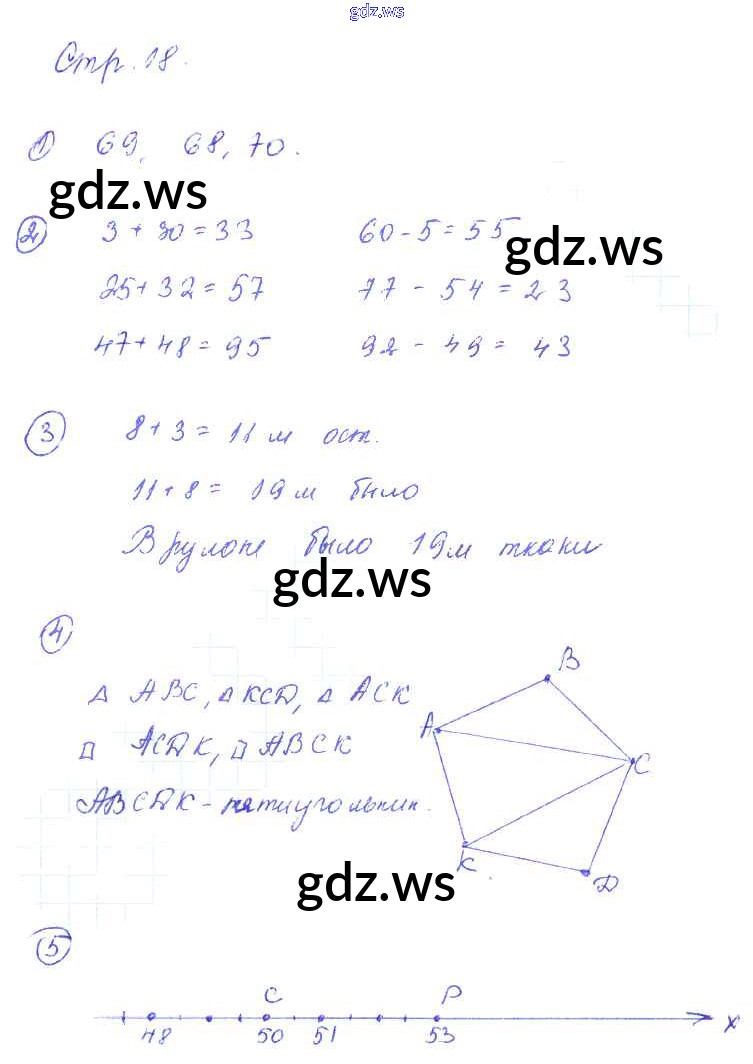 gdz.ws
Стр. 18.
① 69, 68, 70.
gdz.ws
② 3 + 30 = 33 60 - 5 = 55
gdz.ws
25 + 32 = 57 77 - 54 = 23
47 + 48 = 95 92 - 49 = 43
③ 8 + 3 = 11 м ост.
11 + 8 = 19 м было
В рулоне было 19 м ткани
gdz.ws
④
B
△ ABC, △ KCD, △ ACK
A
□ ACDK, □ ABCK
C
ABCDK - пятиугольник.
K
D
gdz.ws
⑤
C P
48 50 51 53 x